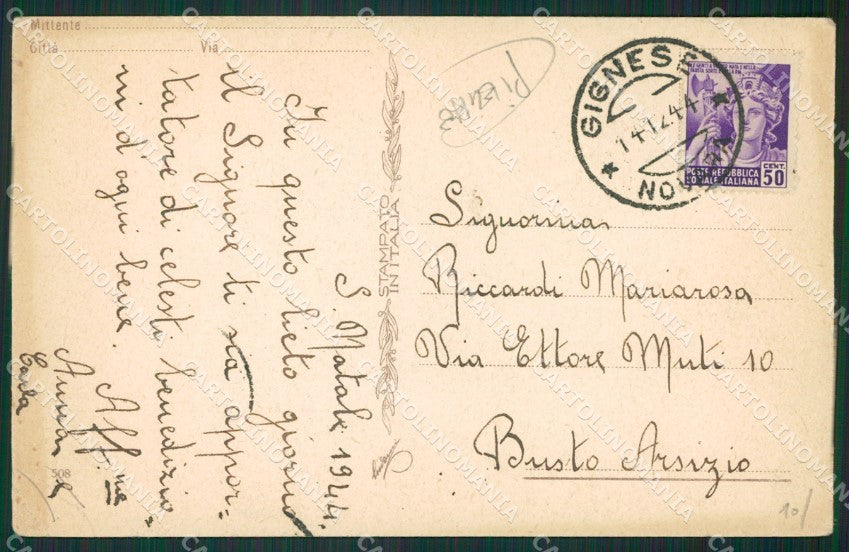 Mittente
Città Via
S. Natale 1944.
In questo lieto giorno
il Signore ti sia appor-
tatore di celesti benedizio-
ni d'ogni bene.
Aff.me
Anna e
Carla
508
STAMPATO
IN ITALIA
GIGNESE
14.12.44
NOVARA
POSTE REPUBBLICA
SOCIALE ITALIANA
CENT.
50
Signorina
Riccardi Mariarosa
Via Ettore Muti 10
Busto Arsizio
10/
CARTOLINOMANIA